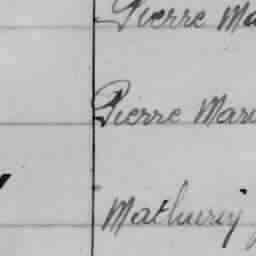 Pierre Ma
Pierre Mari
Mathurin